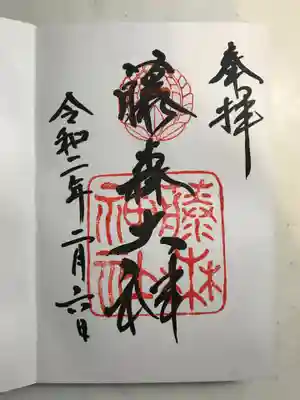 奉拝
藤森大神
藤森神社
令和二年二月六日